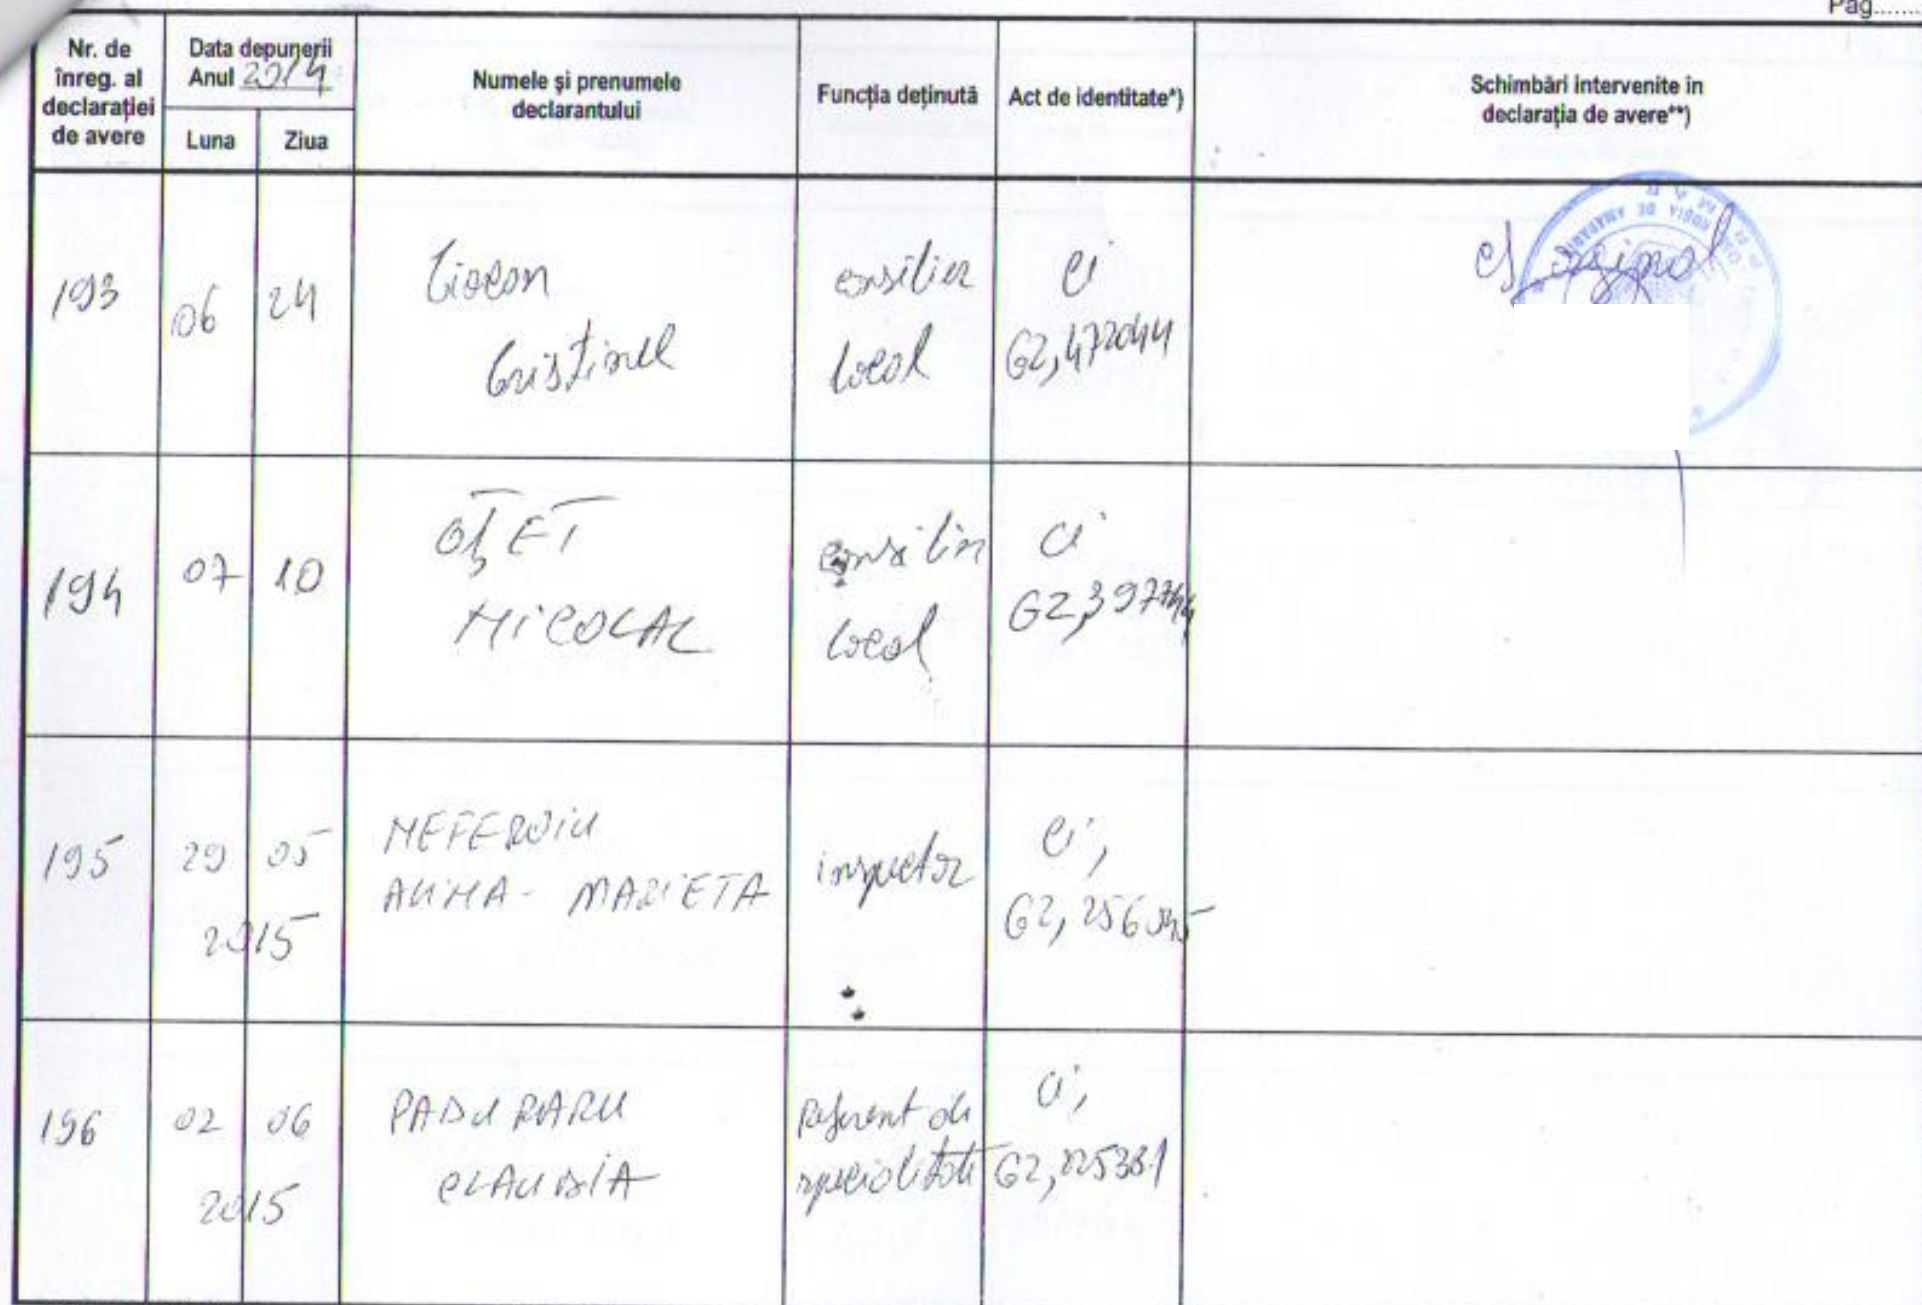 Pag.......
Nr. de înreg. al declarației de avere
Data depunerii
Anul 2014
Luna
Ziua
Numele și prenumele declarantului
Funcția deținută
Act de identitate*)
Schimbări intervenite în declarația de avere**)
193
06
24
Cristinel
consilier
local
ci
GZ, 472044
cf. original
194
07
10
OȚET
NICOLAE
consilier
local
ci
GZ, 397744
195
29
05
2015
NEFEROIU
ALINA - MARIETA
inspector
ci,
GZ,
196
02
06
2015
PADURARU
CLAUDIA
Referent de
specialitate
ci,
GZ,